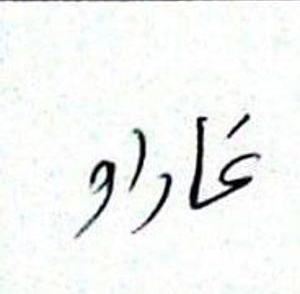 عَاراو